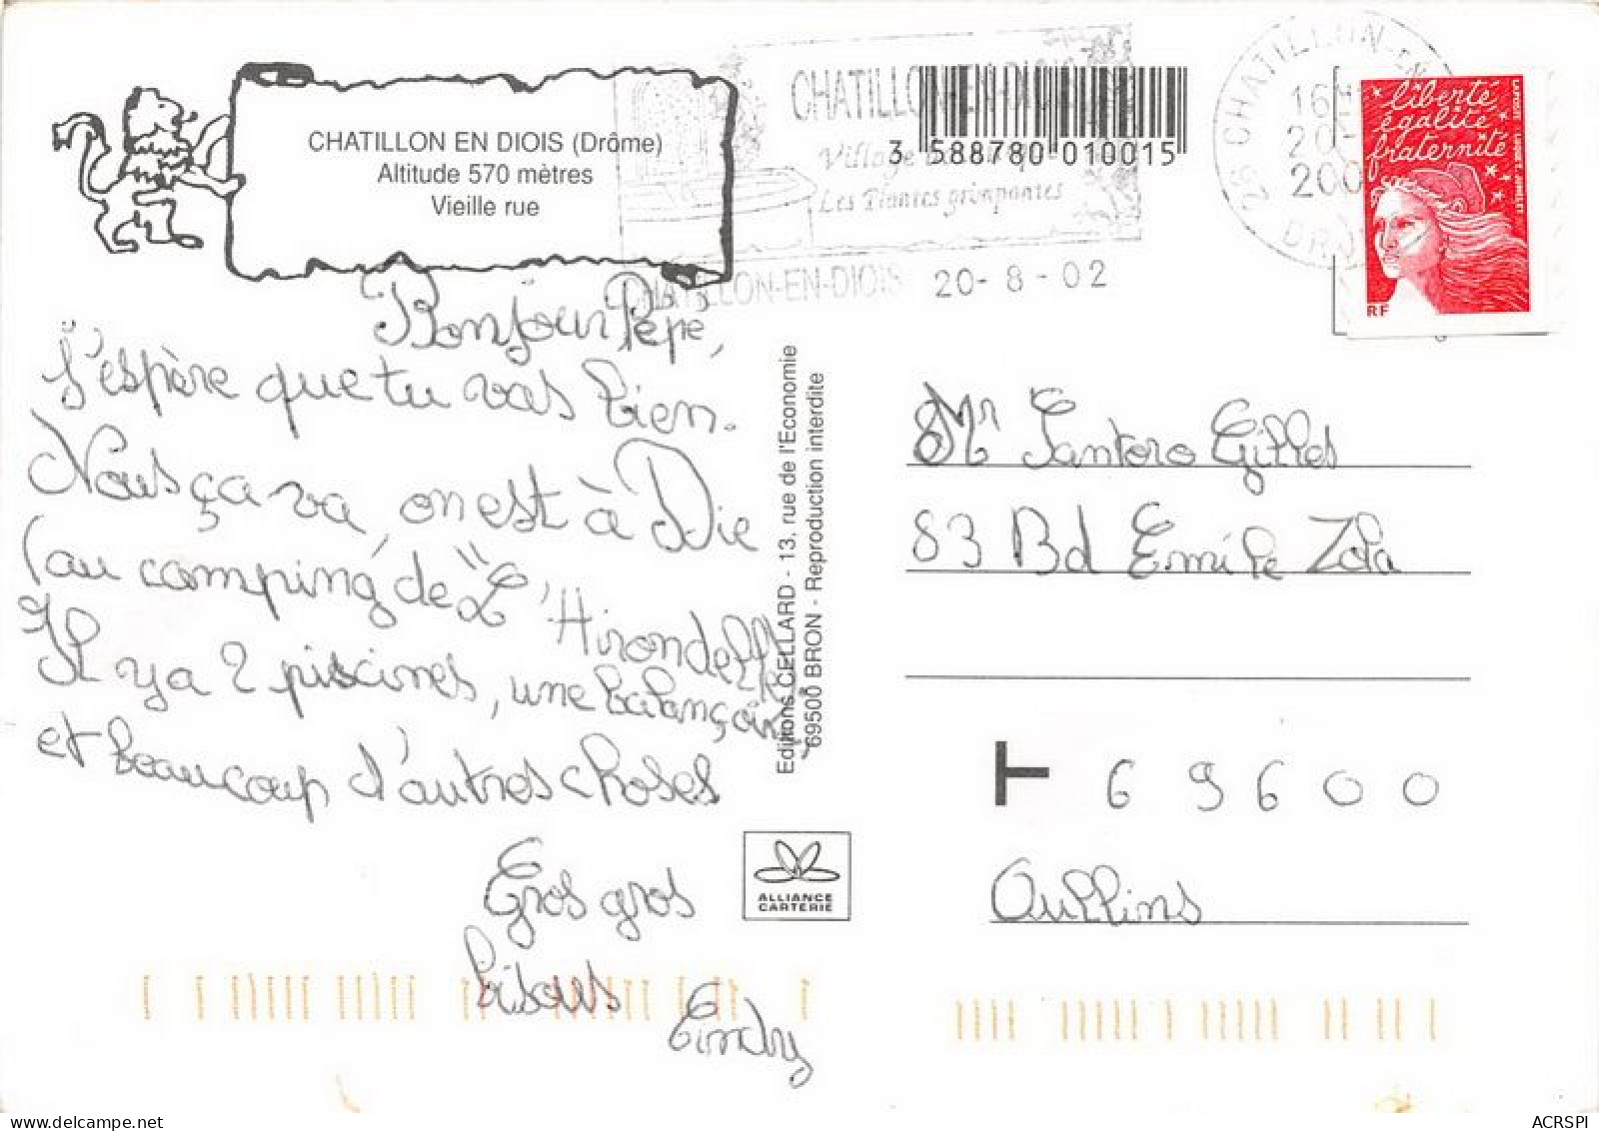 CHATILLON EN DIOIS (Drôme)
Altitude 570 mètres
Vieille rue
CHATILLON-EN-DIOIS
Village
Les Plantes grimpantes
CHATILLON-EN-DIOIS 20-8-02
3 588780 010015
26 CHATILLON-EN-
16H
20-
200
DR
liberté
égalité
fraternité
RF
LA POSTE
Bonjour Pépé,
J'espère que tu vas bien.
Nous ça va, on est à Die
(au camping de "L'Hirondelle
Il y a 2 piscines, une balançoire,
et beaucoup d'autres choses
Gros gros
bisous
Editions CELLARD - 13, rue de l'Economie
69500 BRON - Reproduction interdite
ALLIANCE
CARTERIE
Mr Santoro Gilles
83 Bd Emile Zola
69600
Oullins
ACRSPI